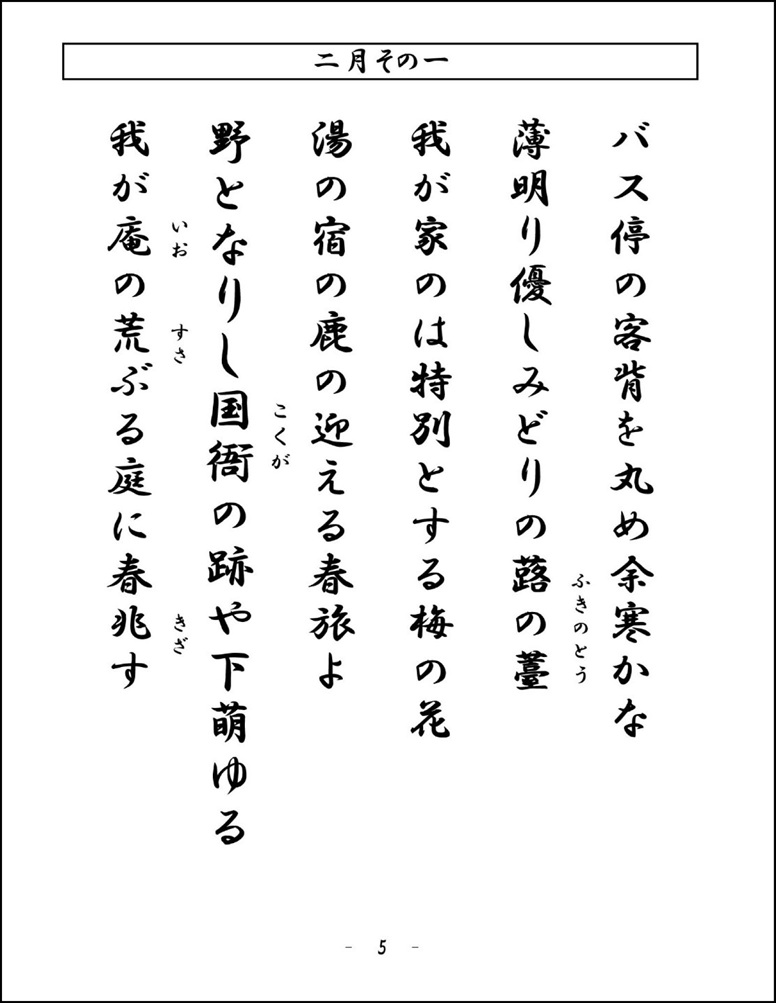 二月その一
バス停の客背を丸め余寒かな
薄明り優しみどりの蕗の薹
ふきのとう
我が家のは特別とする梅の花
湯の宿の鹿の迎える春旅よ
野となりし国衙の跡や下萌ゆる
こくが
我が庵の荒ぶる庭に春兆す
いお すさ きざ
- 5 -